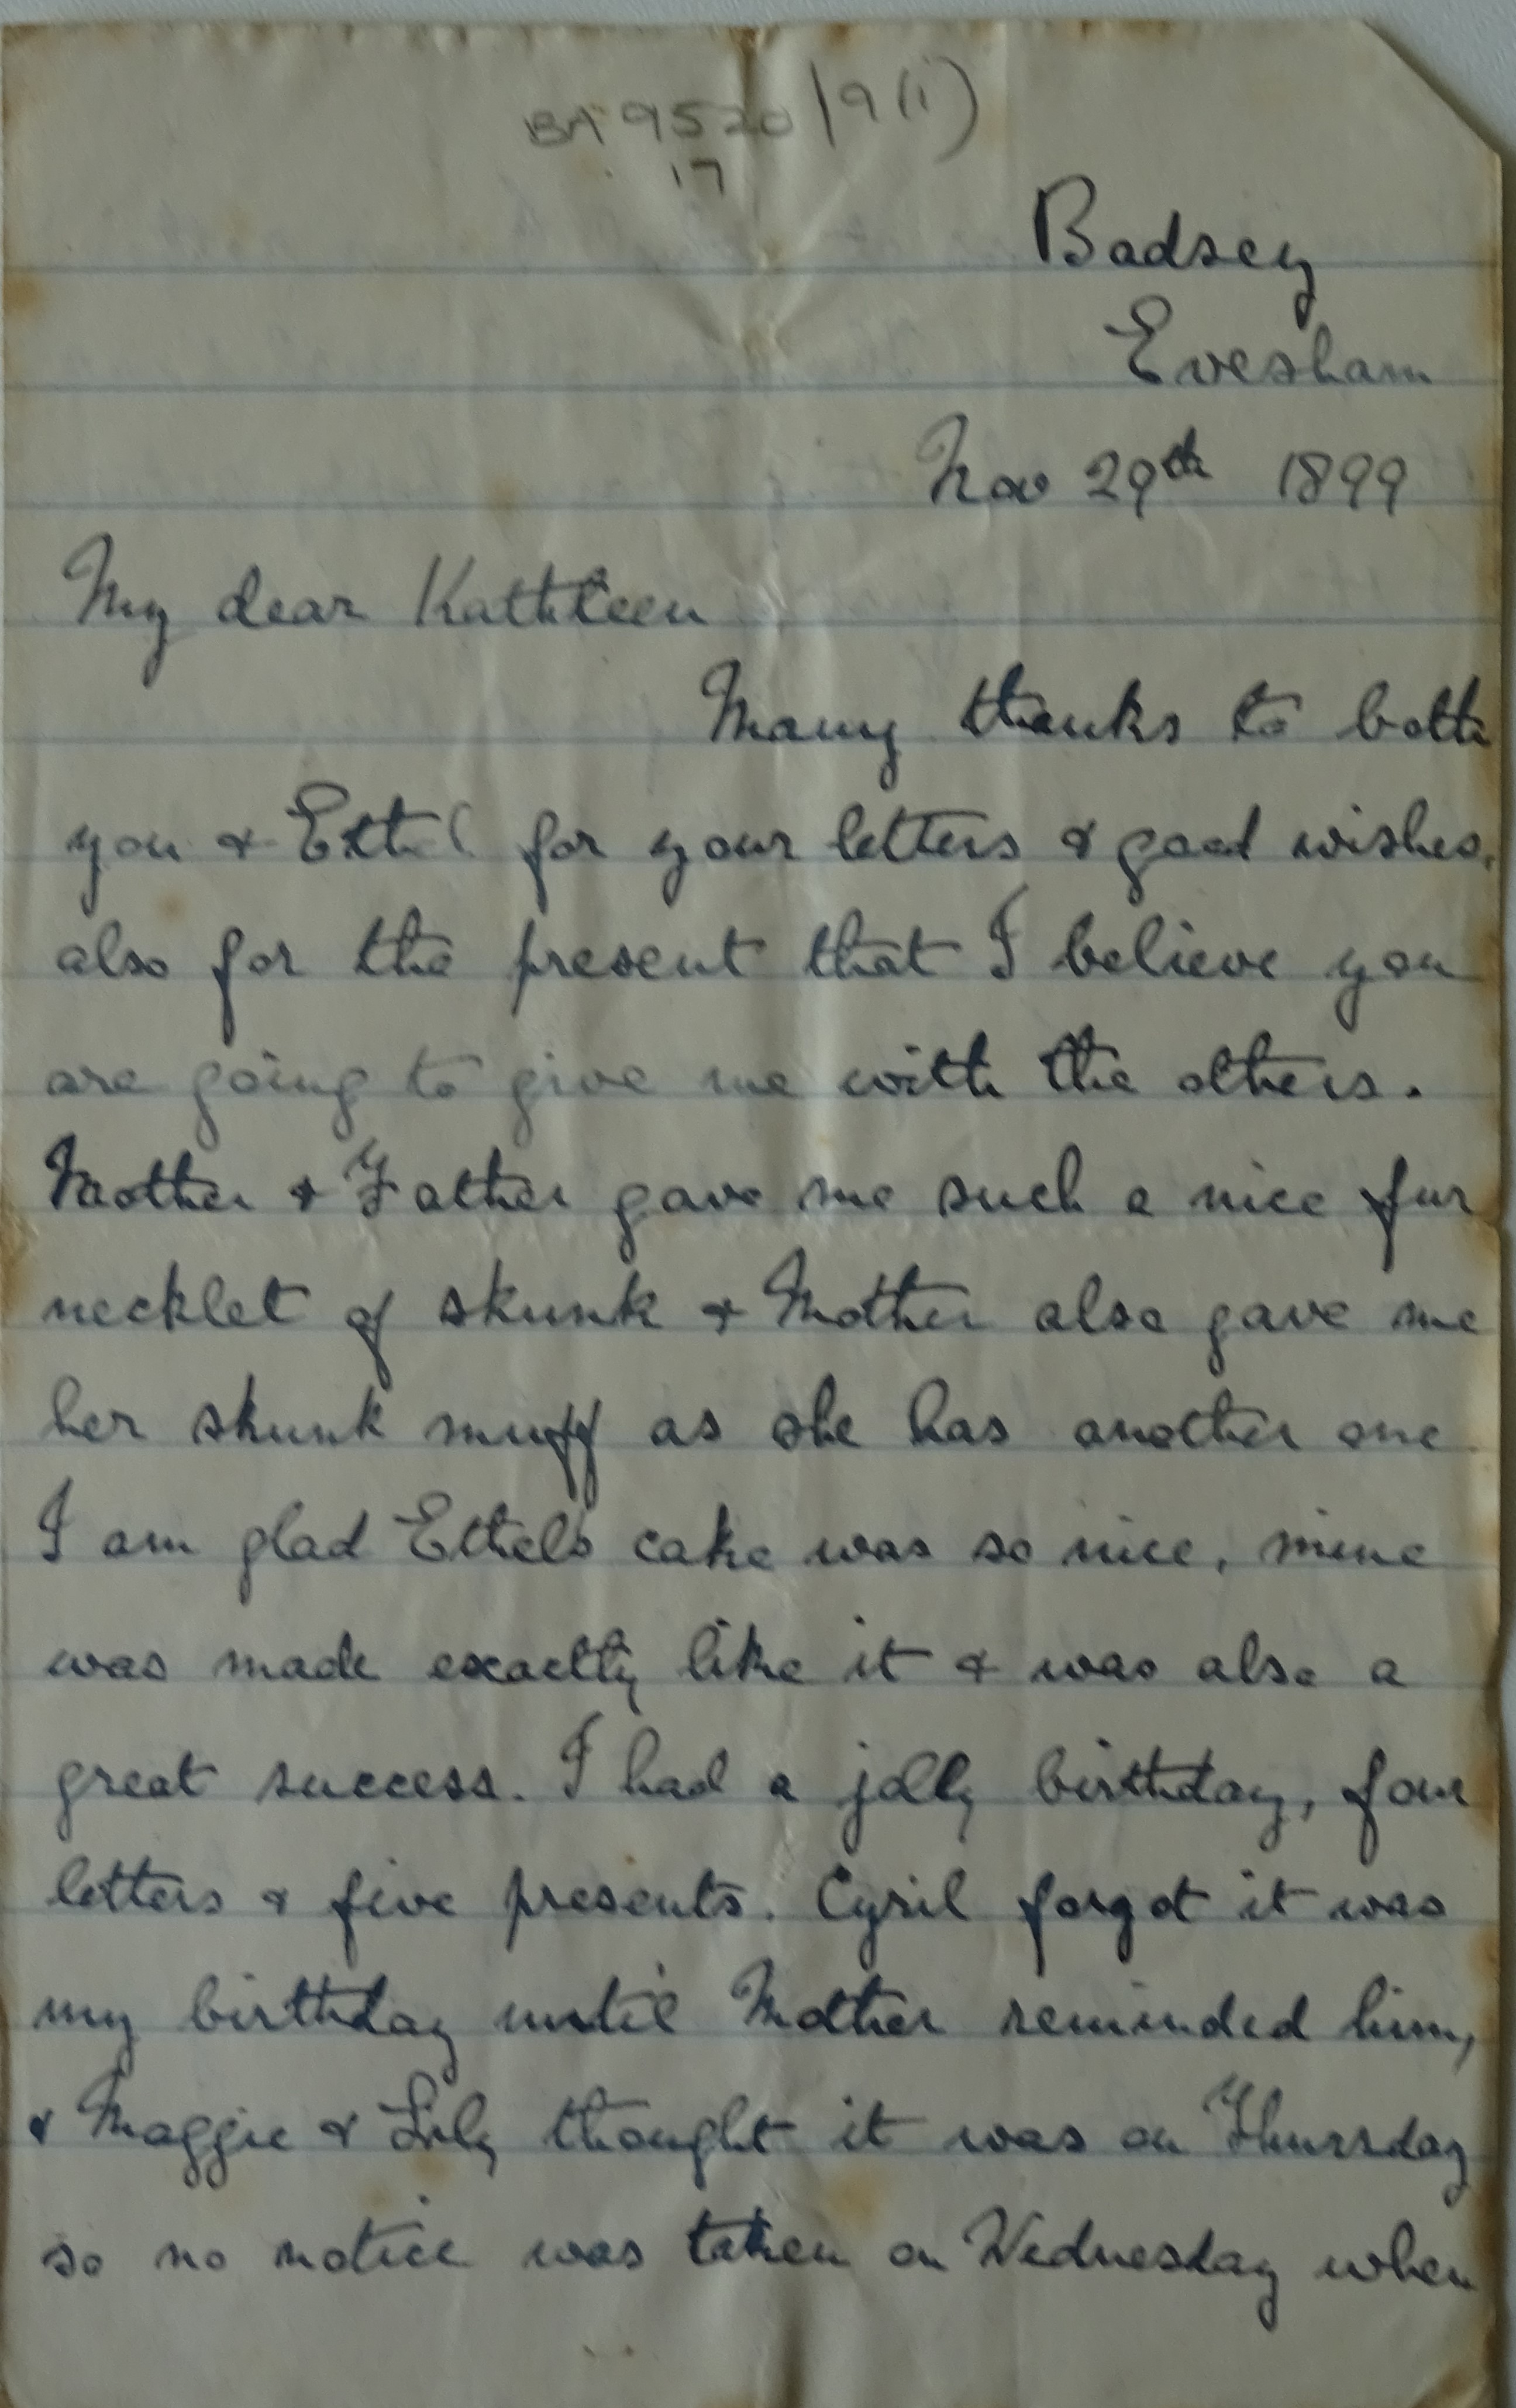 BA 9520/9(i)
17
Badsey
Evesham
Nov 29th 1899
My dear Kathleen
Many thanks to both
you & Ethel for your letters & good wishes,
also for the present that I believe you
are going to give me with the others.
Mother & Father gave me such a nice fur
necklet of skunk & Mother also gave me
her skunk muff as she has another one
I am glad Ethel's cake was so nice, mine
was made exactly like it & was also a
great success. I had a jolly birthday, four
letters & five presents. Cyril forgot it was
my birthday until Mother reminded him,
& Maggie & Lily thought it was on Thursday
so no notice was taken on Wednesday when